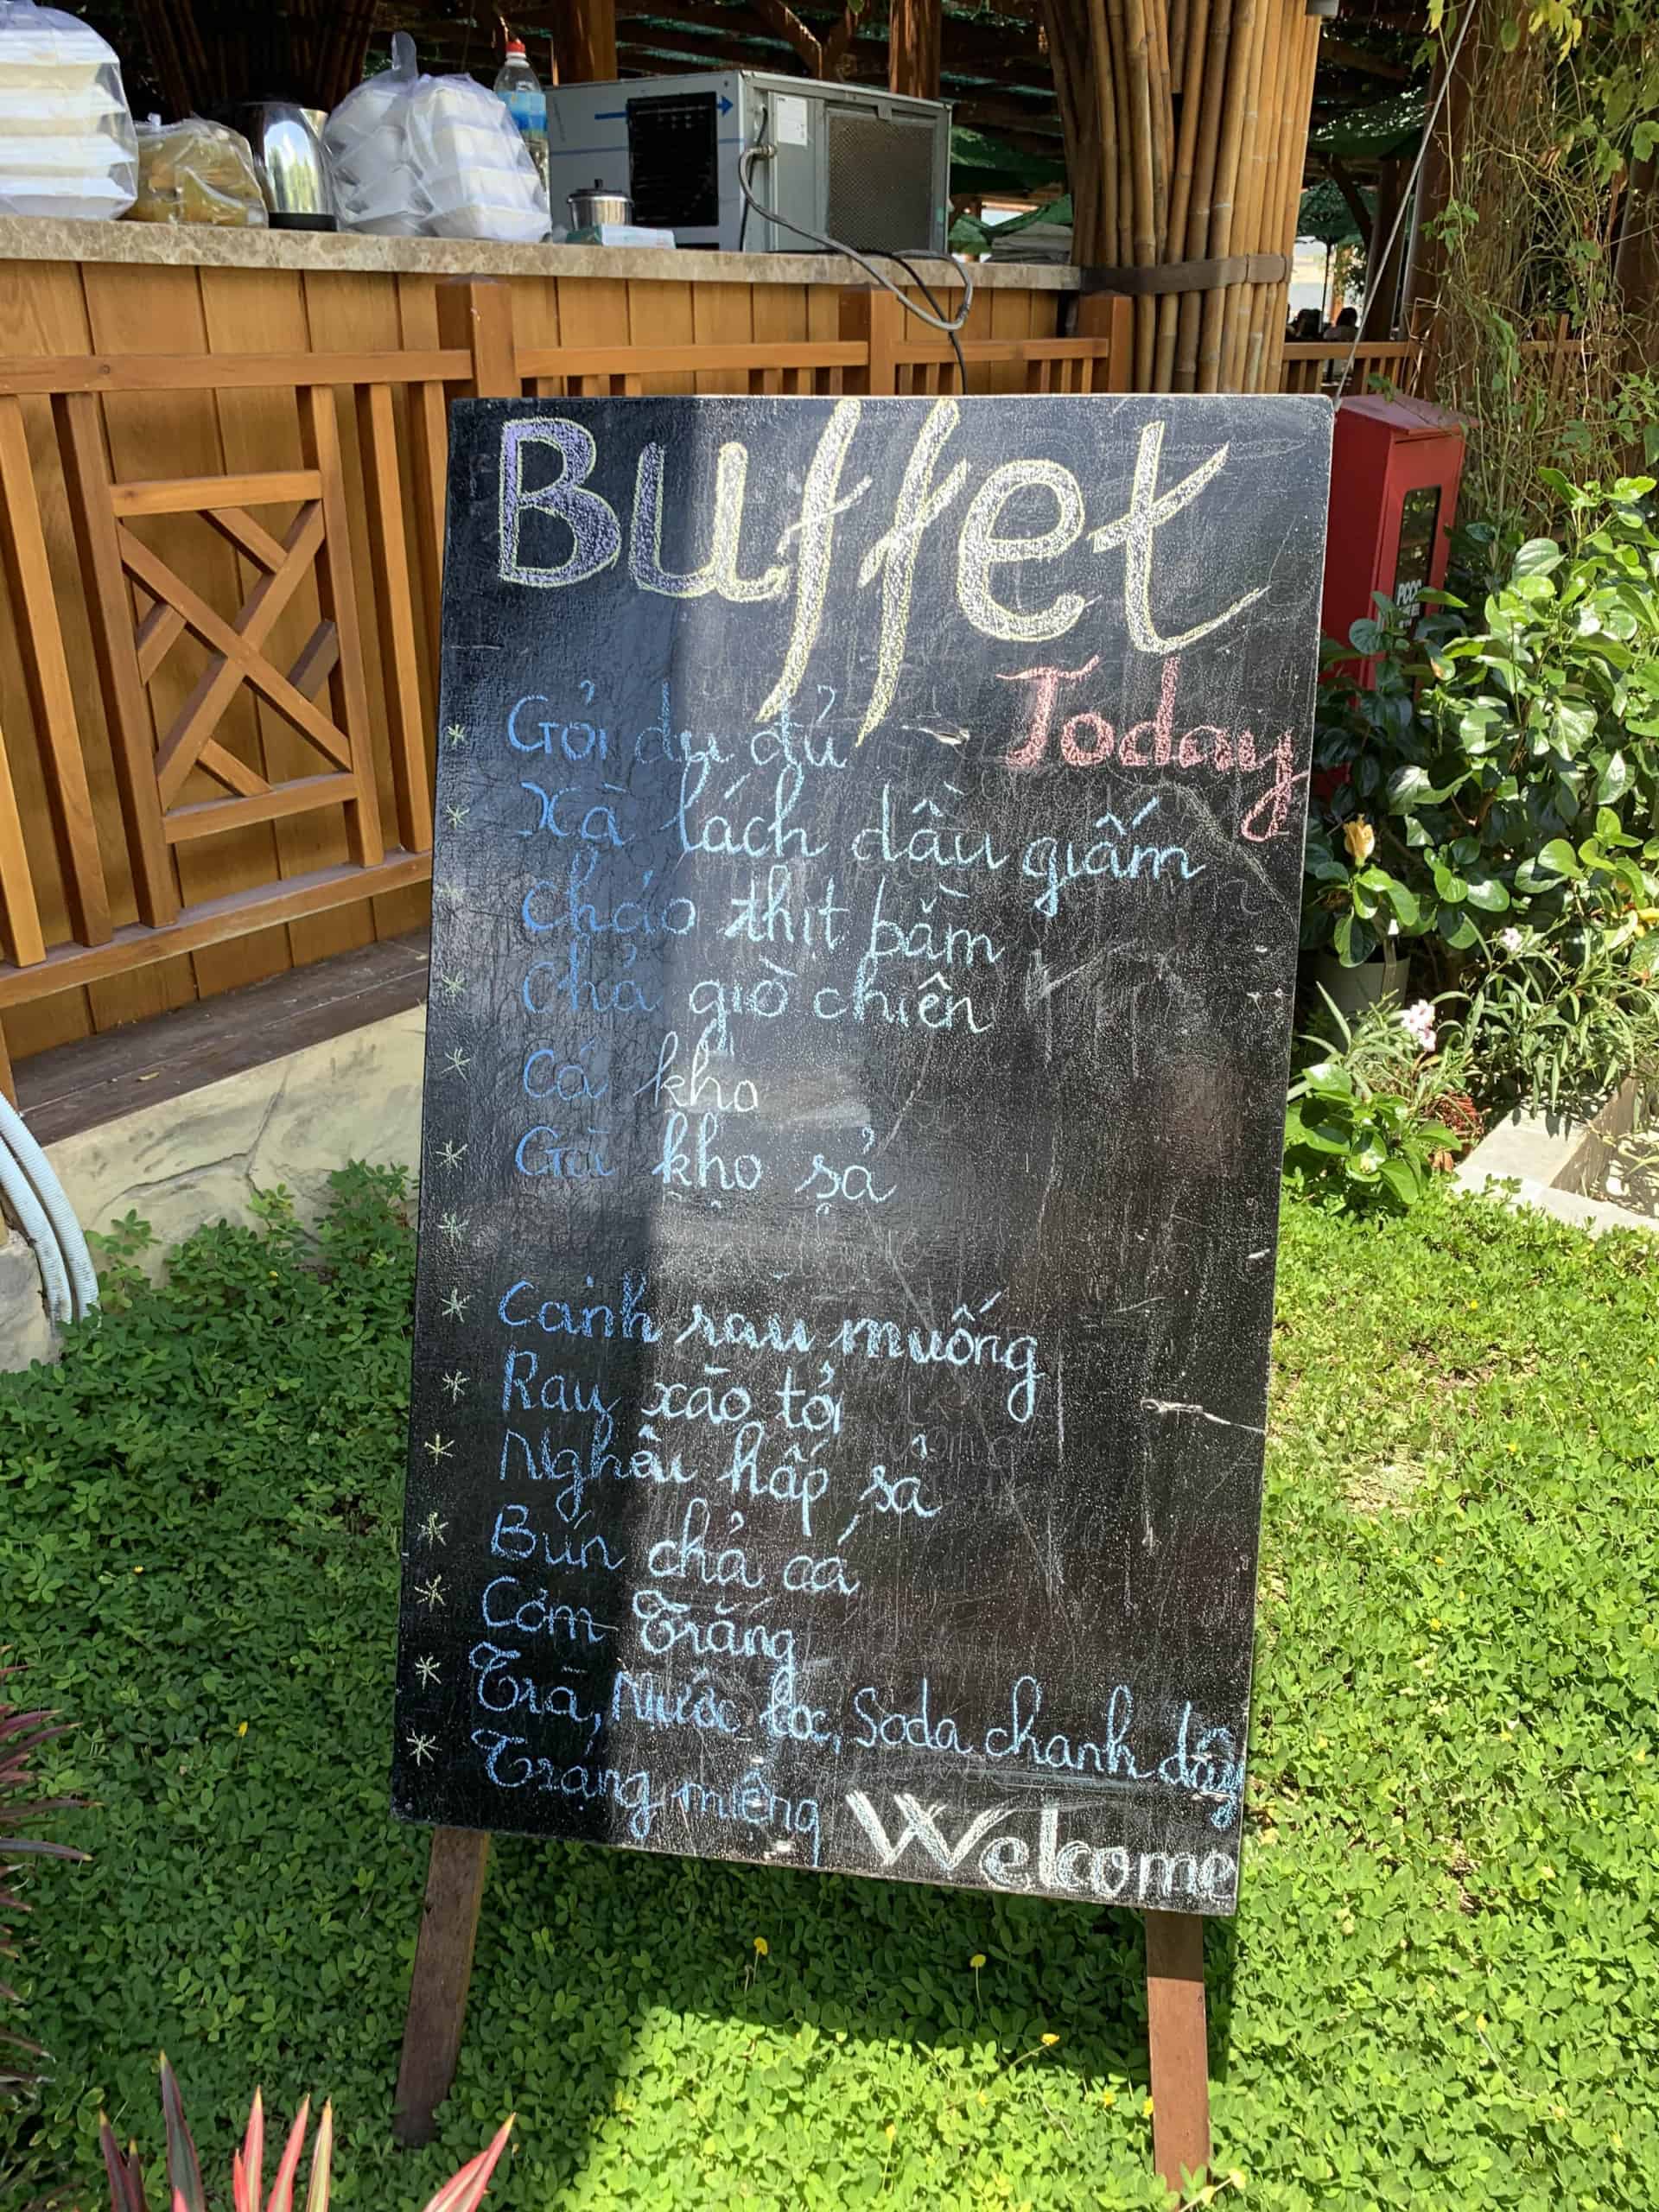 Buffet
Today
* Gỏi đu đủ
* Xà lách dầu giấm
* Cháo thịt bằm
* Chả giò chiên
* Cá kho
* Gà kho sả
*
* Canh rau muống
* Rau xào tỏi
* Nghêu hấp sả
* Bún chả cá
* Cơm Trắng
* Trà, Nước lọc, Soda chanh dây
* Tráng miệng
Welcome